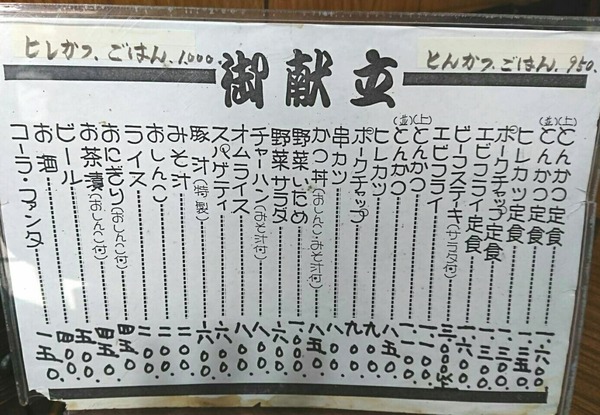 ヒレかつ、ごはん、1,000.
御献立
とんかつ、ごはん、950.
(上)とんかつ定食 一.六〇〇.
(並)とんかつ定食 一.三五〇.
ヒレカツ定食 一.三〇〇.
ポークチャップ定食 一.三〇〇.
エビフライ定食 一.六〇〇.
ビーフステキ(サラダ付) 三.〇〇〇
エビフライ 一.一〇〇.
(上)とんかつ 一.一〇〇.
(並)とんかつ 八五〇.
ヒレカツ 九〇〇.
ポークチャップ 九〇〇.
串カツ 八〇〇.
かつ丼(おしんこ・みそ汁付) 八五〇.
野菜いため
野菜サラダ 六〇〇.
チャーハン(みそ汁付) 八〇〇.
オムライス 八〇〇.
スパゲティ 六〇〇.
豚汁(特製) 六〇〇.
みそ汁 二〇〇.
おしんこ 二〇〇.
ライス 二〇〇.
おにぎり(おしんこ付) 四五〇.
お茶漬(おしんこ付) 四五〇.
ビール 五〇〇.
お酒 四〇〇.
コーラ・ファンタ 一五〇.